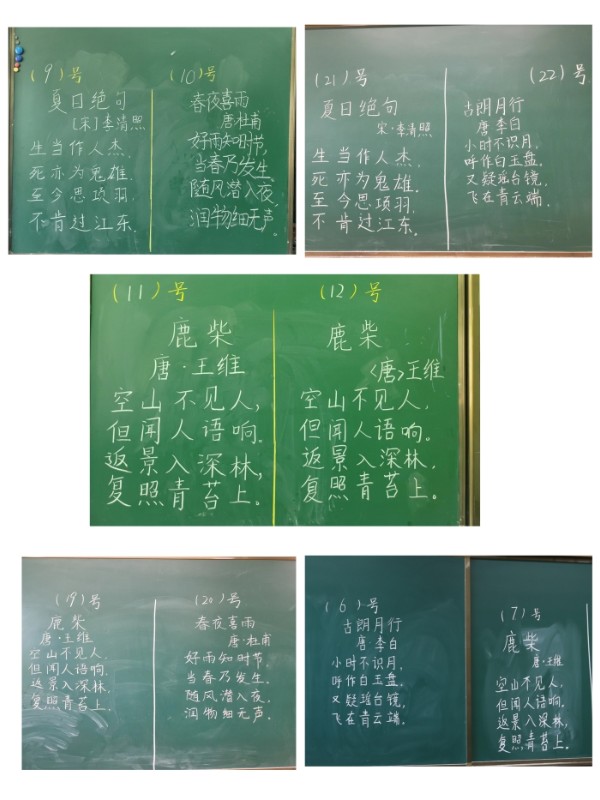 (9)号
夏日绝句
[宋]李清照
生当作人杰，
死亦为鬼雄。
至今思项羽，
不肯过江东。
(10)号
春夜喜雨
唐杜甫
好雨知时节，
当春乃发生
随风潜入夜，
润物细无声。
(21)号
夏日绝句
宋·李清照
生当作人杰，
死亦为鬼雄。
至今思项羽，
不肯过江东。
(22)号
古朗月行
唐 李白
小时不识月，
呼作白玉盘。
又疑瑶台镜，
飞在青云端。
(11)号
鹿柴
唐·王维
空山不见人，
但闻人语响。
返景入深林，
复照青苔上。
(12)号
鹿柴
<唐>王维
空山不见人，
但闻人语响。
返景入深林，
复照青苔上。
(19)号
鹿柴
唐·王维
空山不见人，
但闻人语响。
返景入深林，
复照青苔上。
(20)号
春夜喜雨
唐·杜甫
好雨知时节，
当春乃发生。
随风潜入夜，
润物细无声。
(6)号
古朗月行
唐·李白
小时不识月，
呼作白玉盘。
又疑瑶台镜，
飞在青云端。
(7)号
鹿柴
唐·王维
空山不见人，
但闻人语响。
返景入深林，
复照青苔上。